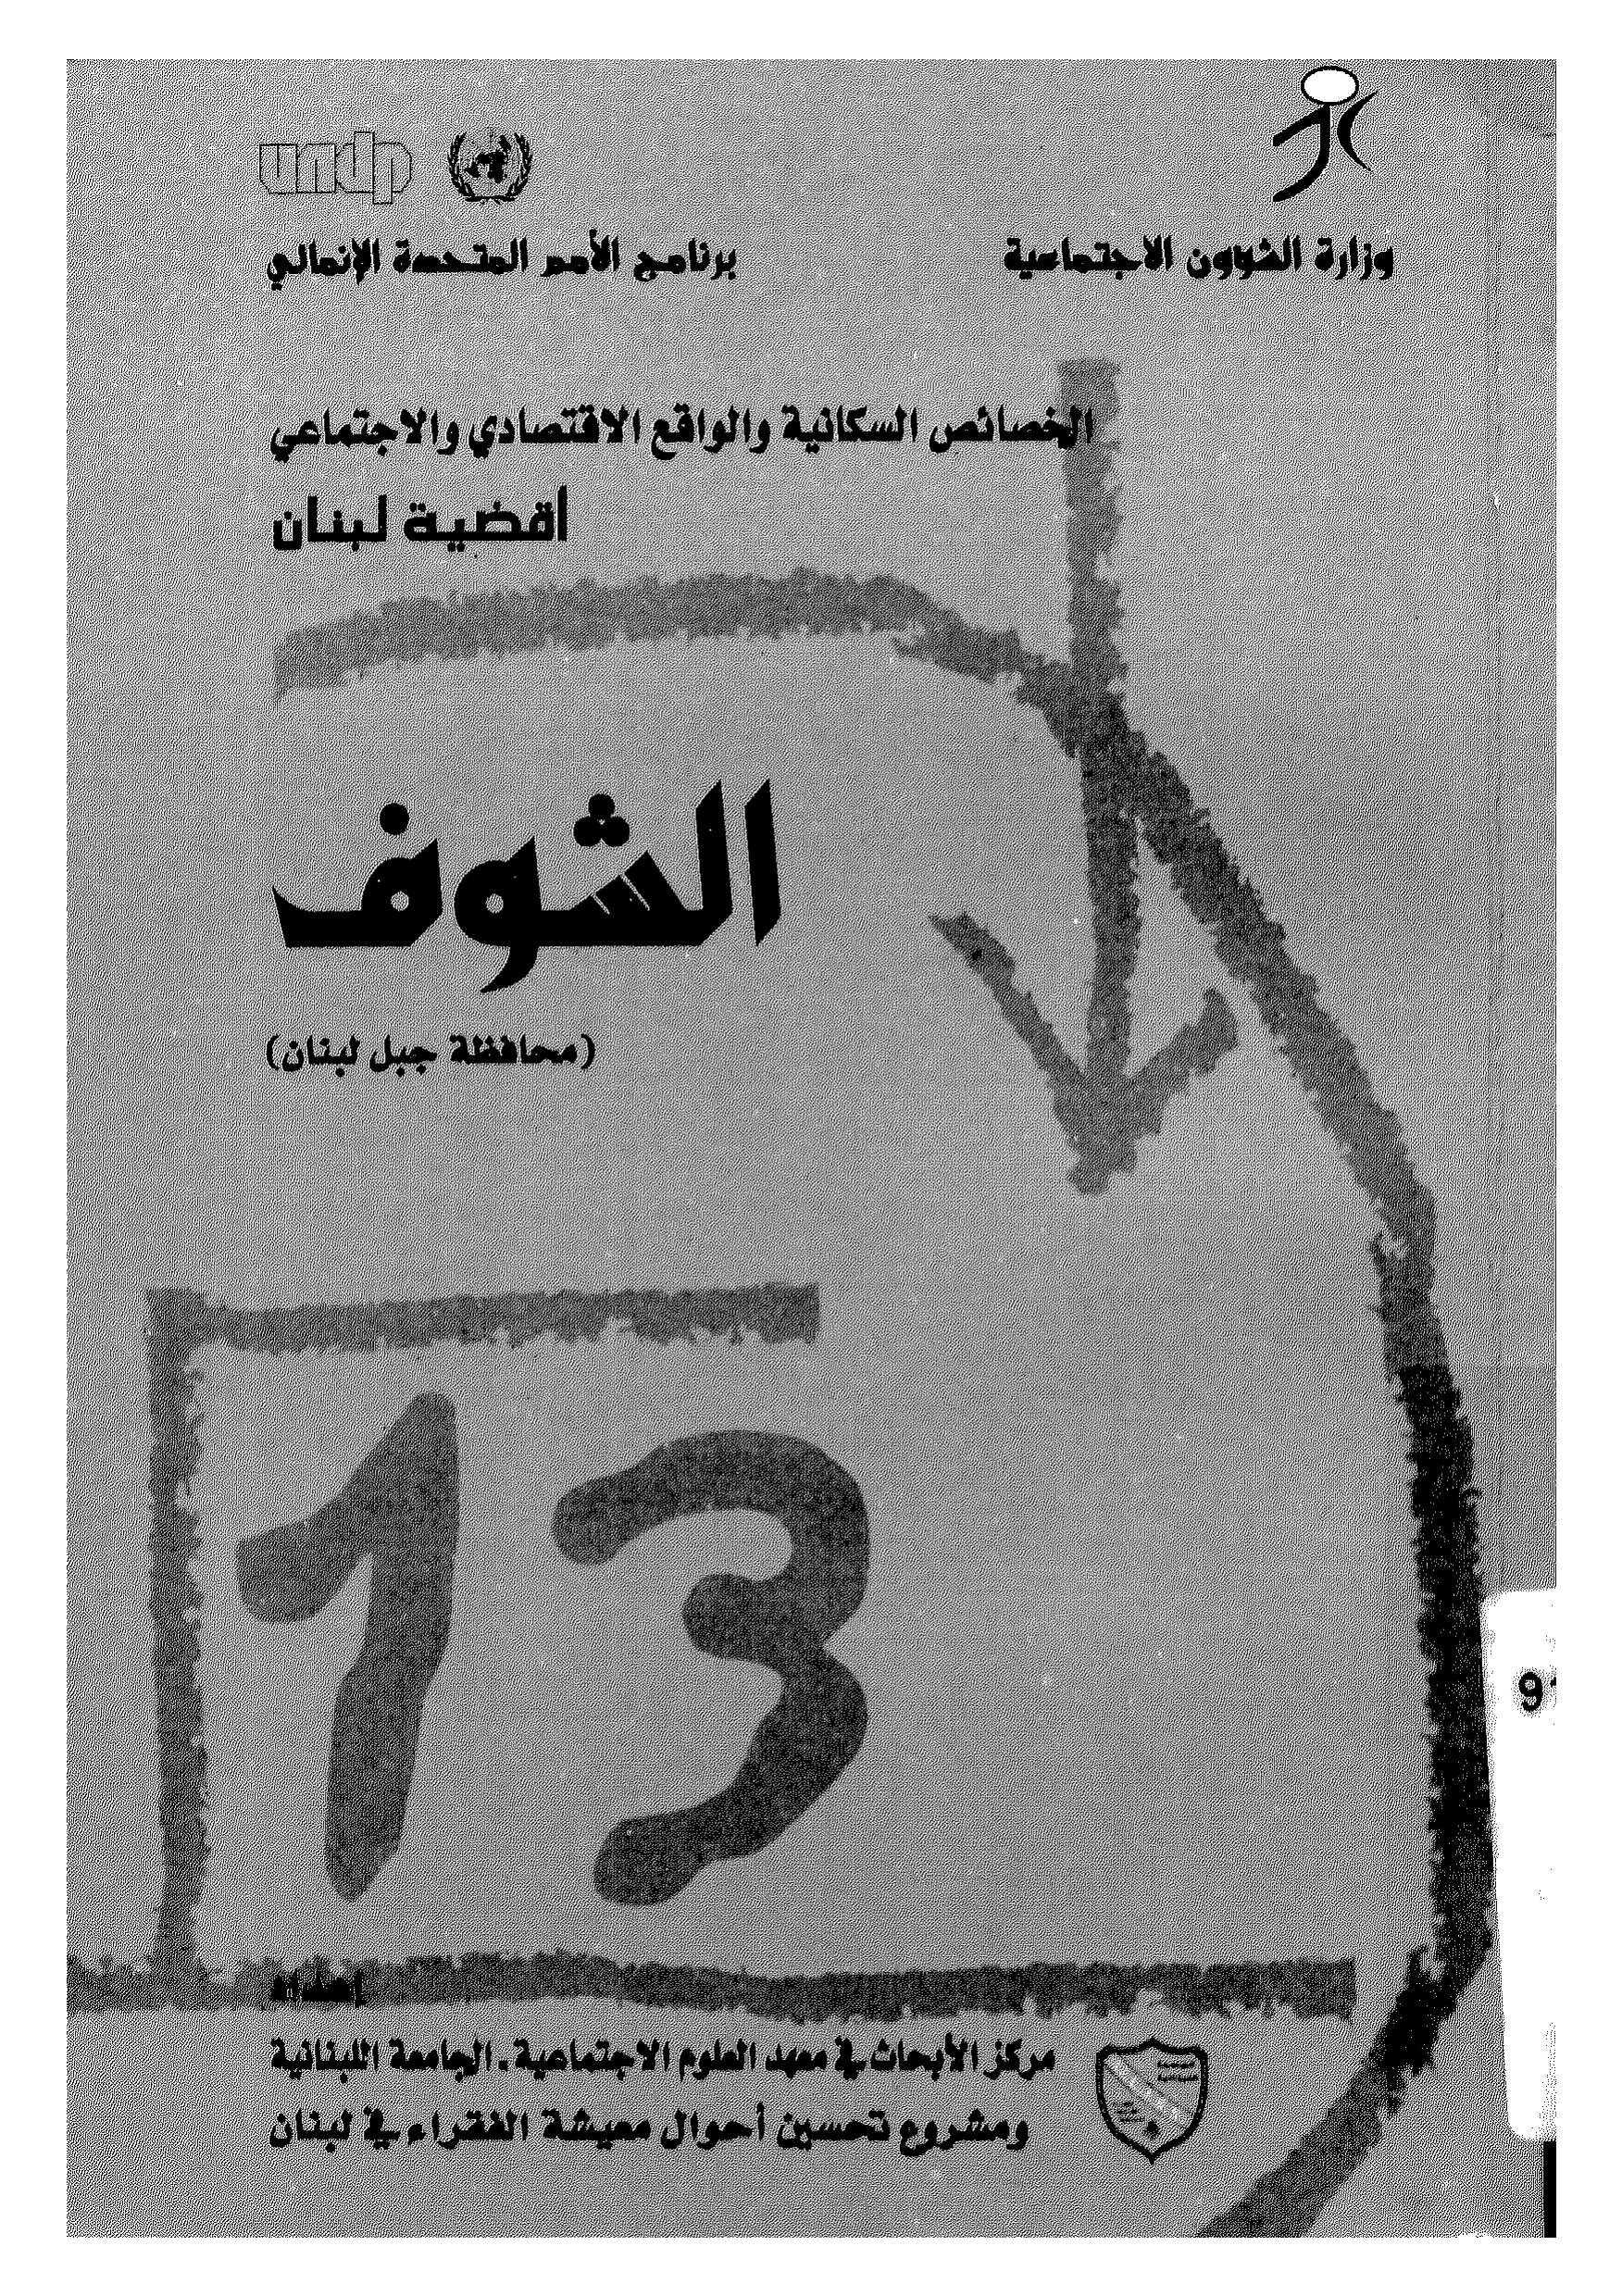 undp
وزارة الشؤون الاجتماعية
برنامج الأمم المتحدة الإنمائي
الخصائص السكانية والواقع الاقتصادي والاجتماعي
أقضية لبنان
الشوف
(محافظة جبل لبنان)
13
9
إعداد
مركز الأبحاث في معهد العلوم الاجتماعية . الجامعة اللبنانية
ومشروع تحسين أحوال معيشة الفقراء في لبنان